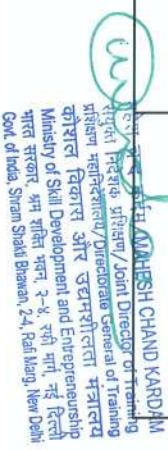 MAHESH CHAND KARDAM
संयुक्त निदेशक प्रशिक्षण/Joint Director of Training
प्रशिक्षण महानिदेशालय/Directorate General of Training
कौशल विकास और उद्यमशीलता मंत्रालय
Ministry of Skill Development and Entrepreneurship
भारत सरकार, श्रम शक्ति भवन, २-४, रफी मार्ग, नई दिल्ली
Govt. of India, Shram Shakti Bhawan, 2-4, Rafi Marg, New Delhi